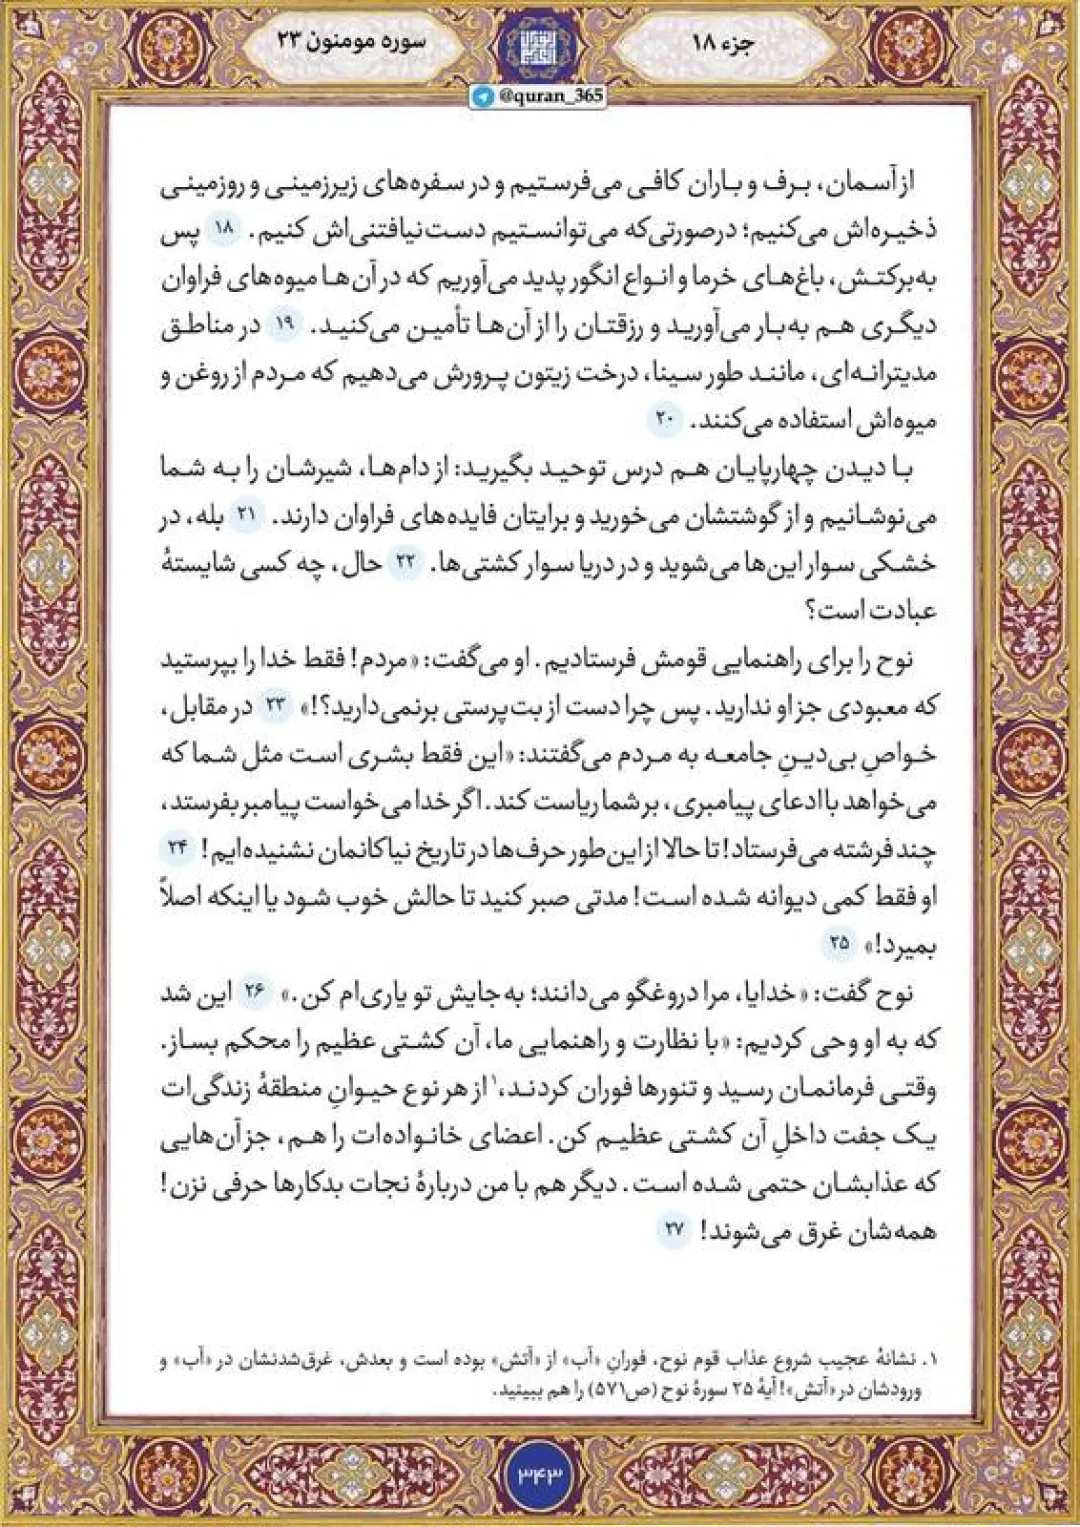 جزء ۱۸
سوره مومنون ۲۳
@quran_365
از آسمان، برف و باران کافی می‌فرستیم و در سفره‌های زیرزمینی و روزمینی
ذخیره‌اش می‌کنیم؛ درصورتی‌که می‌توانستیم دست‌نیافتنی‌اش کنیم. ۱۸ پس
به‌برکتش، باغ‌های خرما و انواع انگور پدید می‌آوریم که در آن‌ها میوه‌های فراوان
دیگری هم به‌بار می‌آورید و رزقتان را از آن‌ها تأمین می‌کنید. ۱۹ در مناطق
مدیترانه‌ای، مانند طور سینا، درخت زیتون پرورش می‌دهیم که مردم از روغن و
میوه‌اش استفاده می‌کنند. ۲۰
با دیدن چهارپایان هم درس توحید بگیرید: از دام‌ها، شیرشان را به شما
می‌نوشانیم و از گوشتشان می‌خورید و برایتان فایده‌های فراوان دارند. ۲۱ بله، در
خشکی سوار این‌ها می‌شوید و در دریا سوار کشتی‌ها. ۲۲ حال، چه کسی شایستهٔ
عبادت است؟
نوح را برای راهنمایی قومش فرستادیم. او می‌گفت: «مردم! فقط خدا را بپرستید
که معبودی جز او ندارید. پس چرا دست از بت‌پرستی برنمی‌دارید؟!» ۲۳ در مقابل،
خواصِ بی‌دینِ جامعه به مردم می‌گفتند: «این فقط بشری است مثل شما که
می‌خواهد با ادعای پیامبری، بر شما ریاست کند. اگر خدا می‌خواست پیامبر بفرستد،
چند فرشته می‌فرستاد! تا حالا از این‌طور حرف‌ها در تاریخ نیاکانمان نشنیده‌ایم! ۲۴
او فقط کمی دیوانه شده است! مدتی صبر کنید تا حالش خوب شود یا اینکه اصلاً
بمیرد!» ۲۵
نوح گفت: «خدایا، مرا دروغگو می‌دانند؛ به‌جایش تو یاری‌ام کن.» ۲۶ این شد
که به او وحی کردیم: «با نظارت و راهنمایی ما، آن کشتی عظیم را محکم بساز.
وقتی فرمانمان رسید و تنورها فوران کردند،۱ از هر نوع حیوانِ منطقهٔ زندگی‌ات
یک جفت داخلِ آن کشتی عظیم کن. اعضای خانواده‌ات را هم، جز آن‌هایی
که عذابشان حتمی شده است. دیگر هم با من دربارهٔ نجات بدکارها حرفی نزن!
همه‌شان غرق می‌شوند! ۲۷
۱. نشانهٔ عجیب شروع عذاب قوم نوح، فورانِ «آب» از «آتش» بوده است و بعدش، غرق‌شدنشان در «آب» و
ورودشان در «آتش»! آیهٔ ۲۵ سورهٔ نوح (ص۵۷۱) را هم ببینید.
۳۴۳